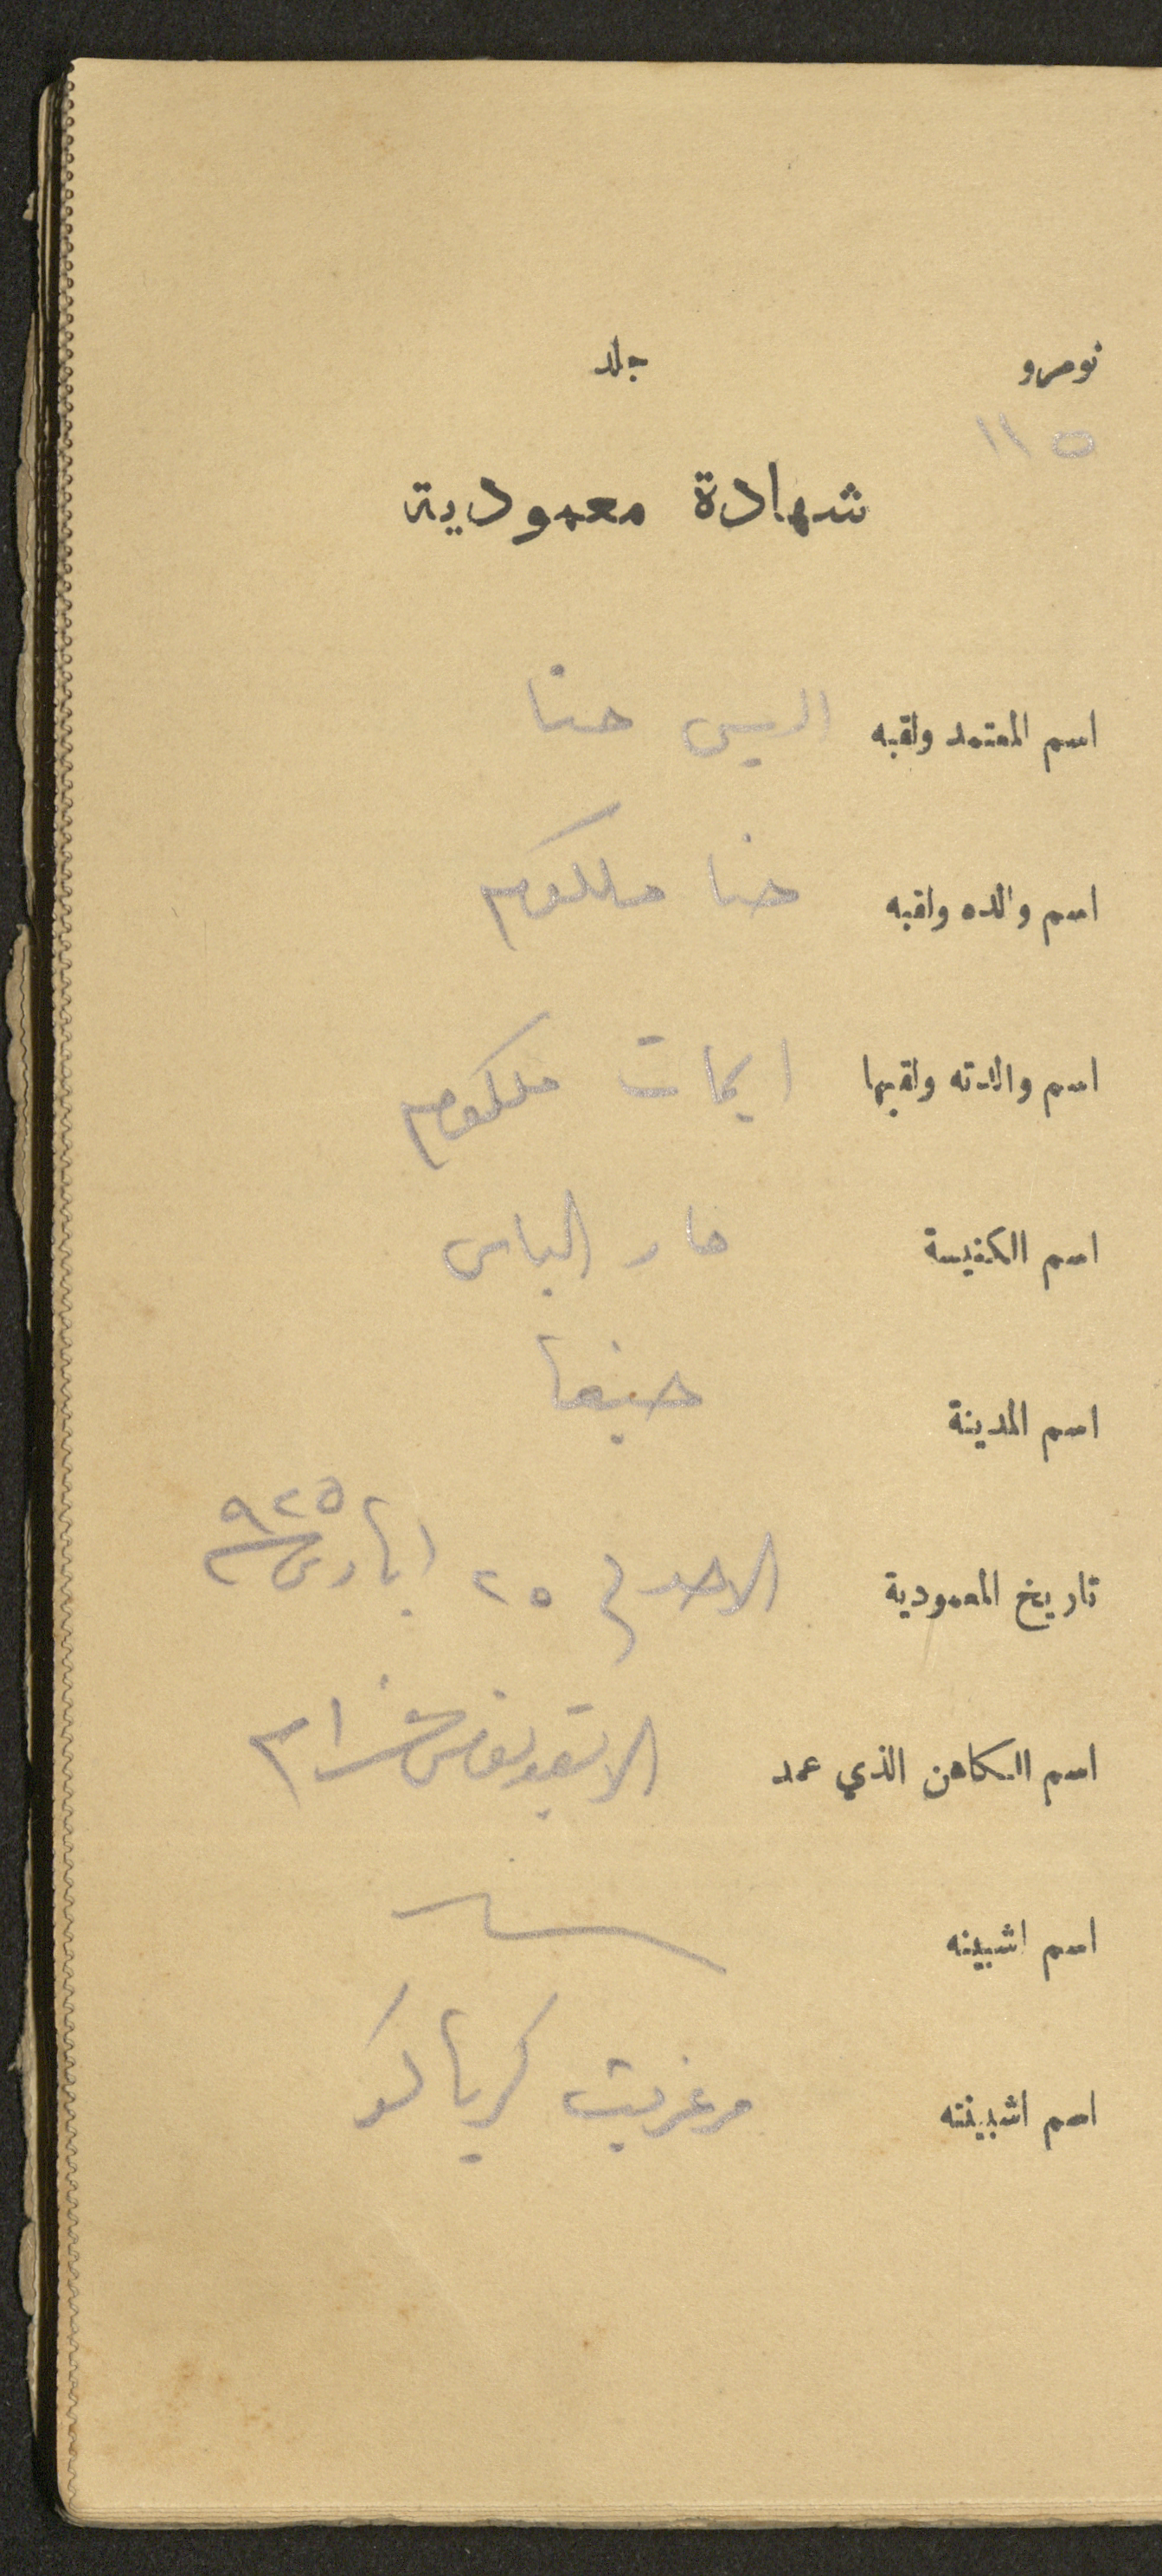 نومرو جلد
١١٥
شهادة معمودية
اسم المعتمد ولقبه اليس حنا
اسم والده ولقبه حنا ملكوم
اسم والدته ولقبها ملكوم
اسم الكنيسة مار الياس
اسم المدينة حيفا
تاريخ المعمودية الاحد في ٢٥ ٩٢٥
اسم الكاهن الذي عمد
اسم اشبينه
اسم اشبينته مرغريت كرياكو